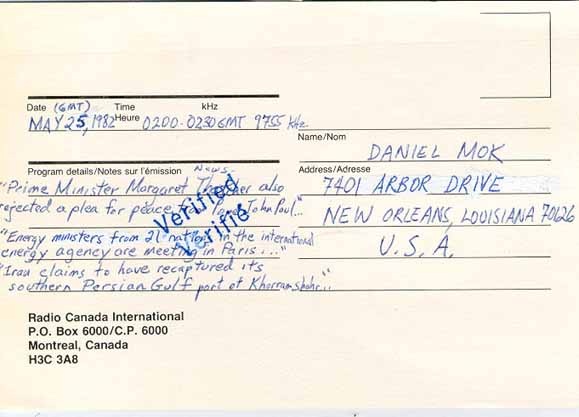 Date (GMT) Time kHz
MAY 25, 1982 Heure 0200-0230 GMT 9755 kHz.
Name/Nom
DANIEL MOK
Program details/Notes sur l'émission News
Address/Adresse
"Prime Minister Margaret Thatcher also
rejected a plea for peace from Pope John Paul..."
7401 ARBOR DRIVE
NEW ORLEANS, LOUISIANA 70126
U.S.A.
"Energy ministers from 21 nations in the international
energy agency are meeting in Paris..."
"Iran claims to have recaptured its
southern Persian Gulf port of Khorramshahr.."
Verified
Verifié
Radio Canada International
P.O. Box 6000/C.P. 6000
Montreal, Canada
H3C 3A8